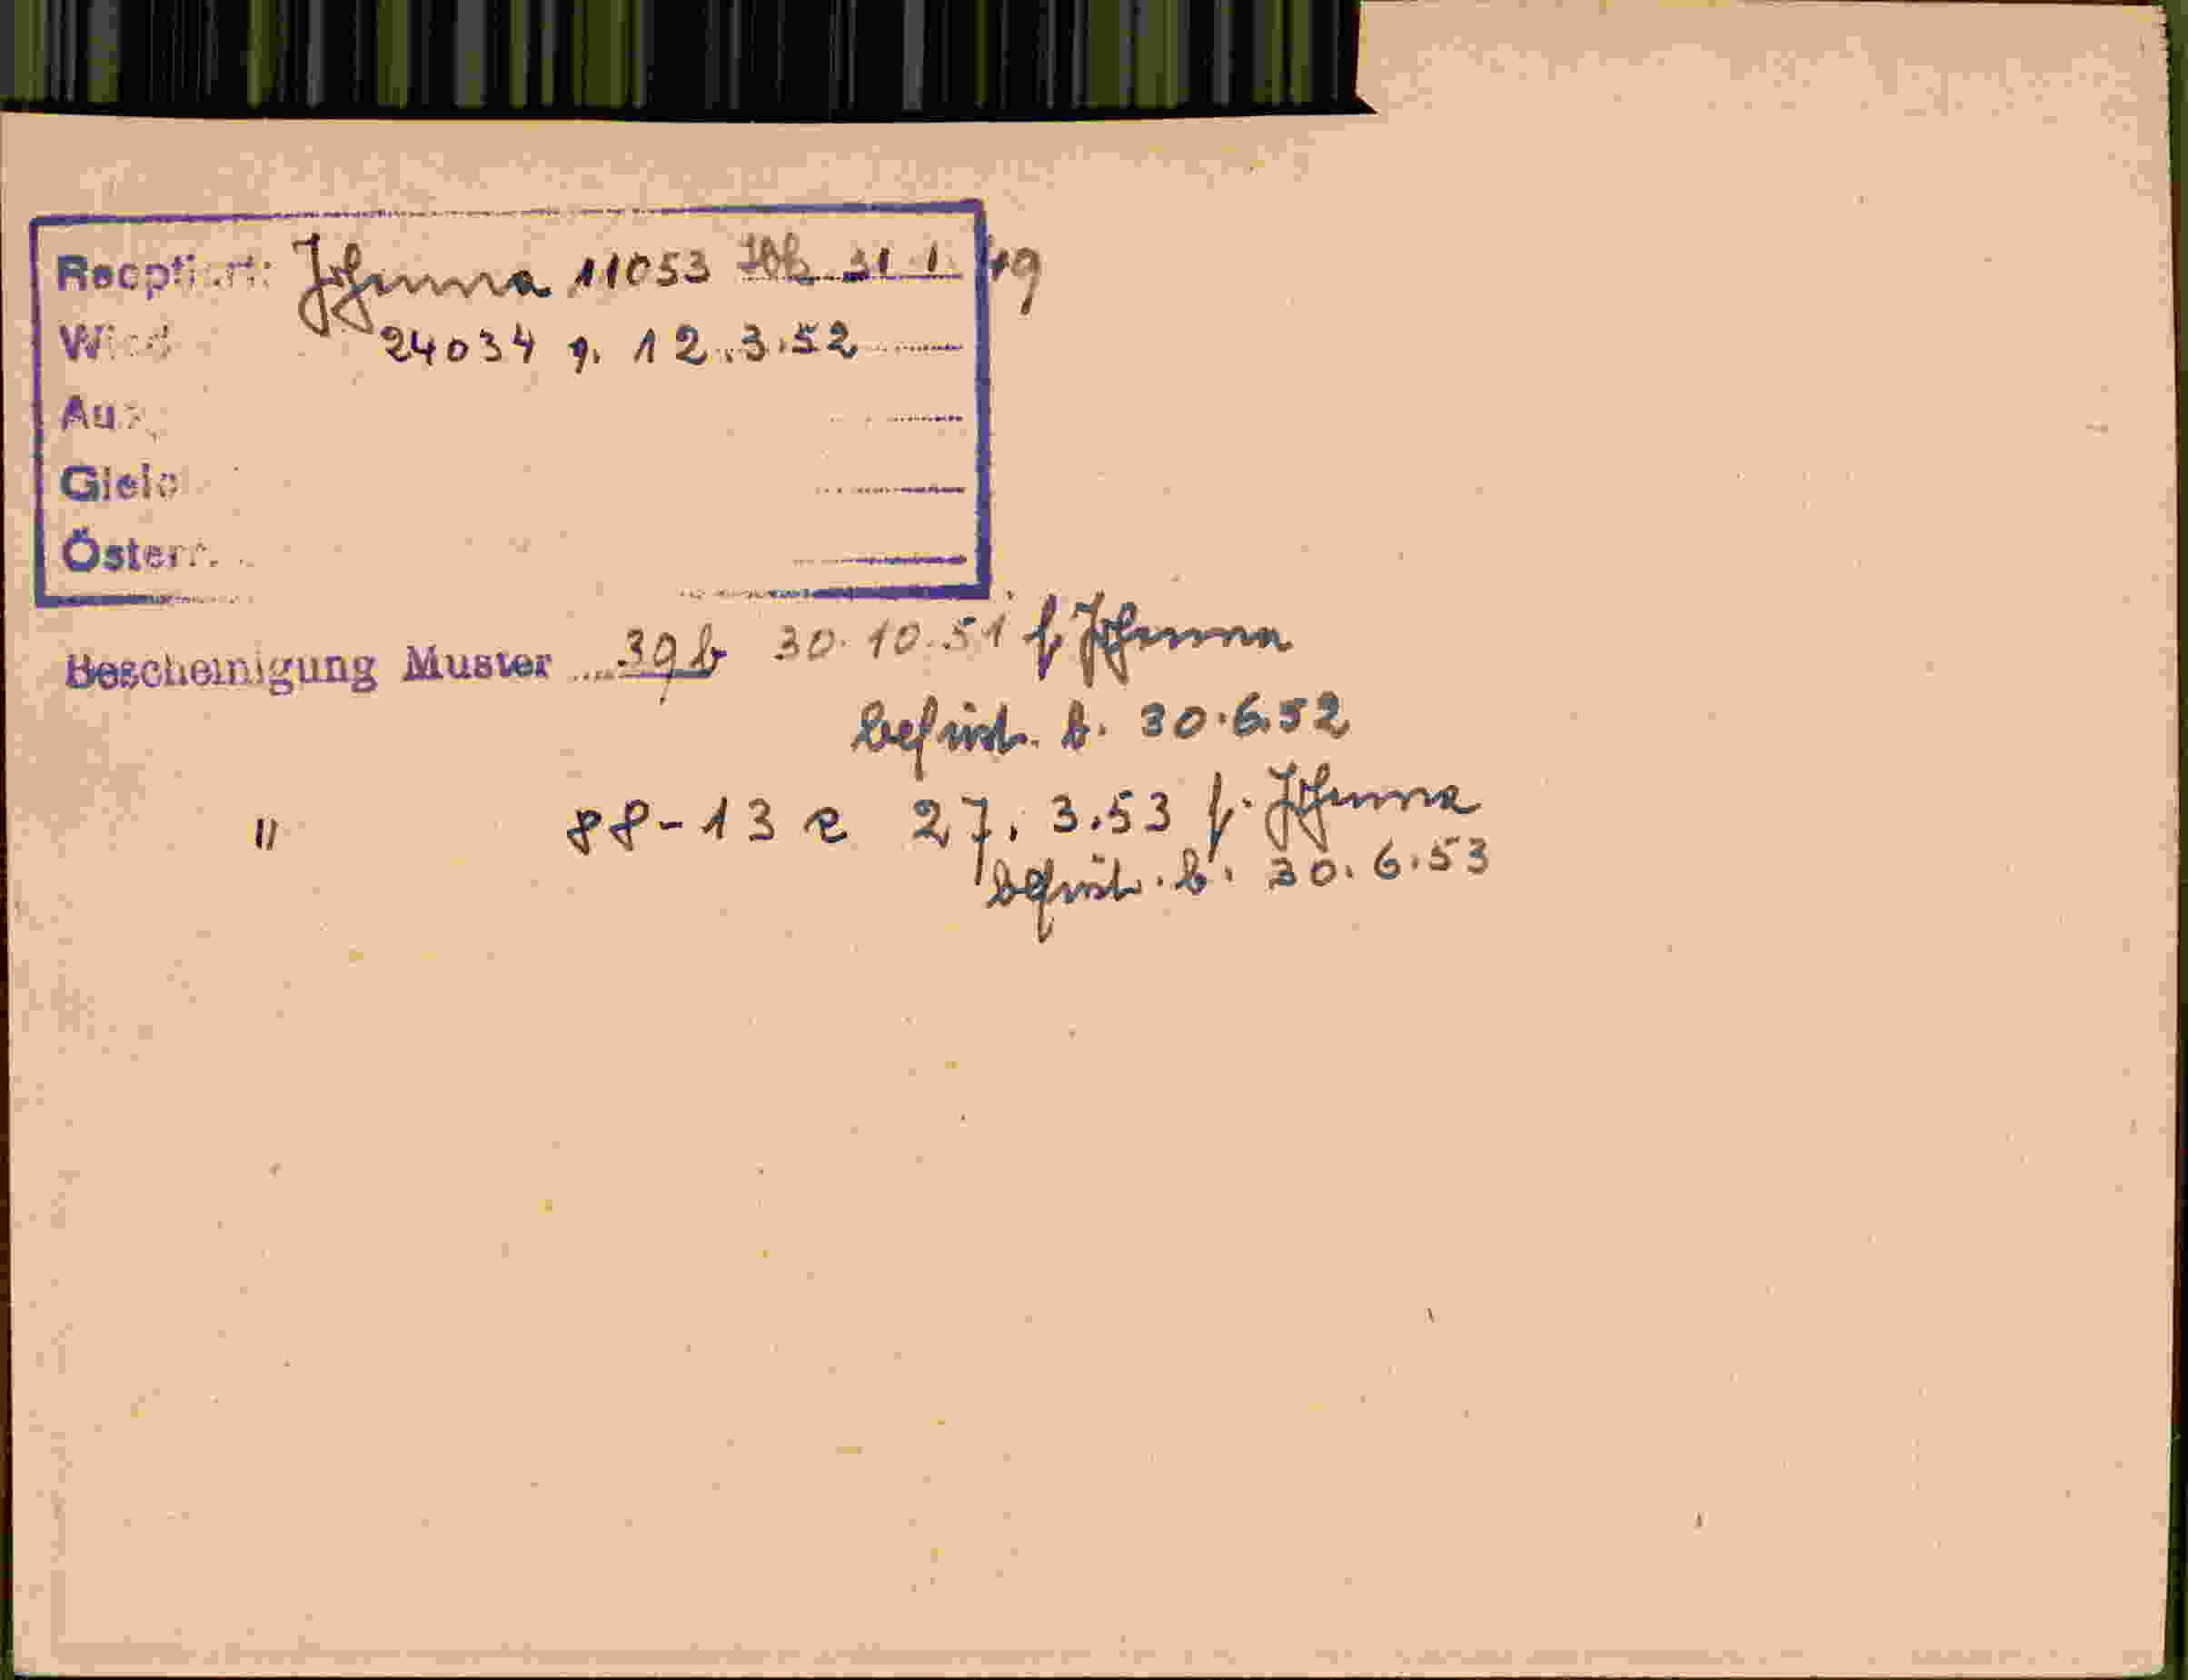 Johanna 11053 31 1 49
24034 g. 12.3.52
Österr.
Bescheinigung Muster 39b 30.10.51 f. Johanna
befrist. b. 30.6.52
" 88-13 e 27.3.53 f. Johanna
befrist. b. 30.6.53